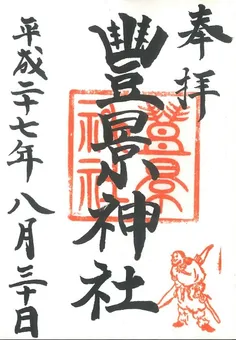 奉拝
豊景神社
平成二十七年八月三十日
豊景
神社